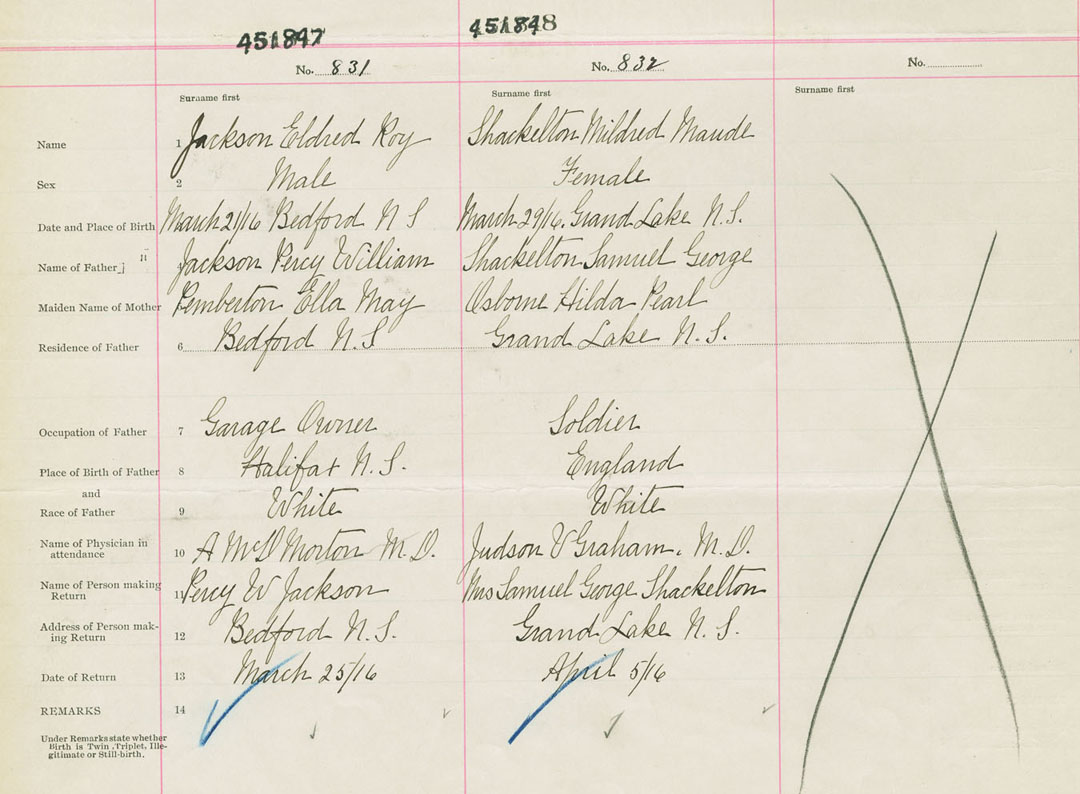 451847 451848
No. 831 No. 832 No.
Surname first Surname first Surname first
Name 1 Jackson Eldred Roy Shackelton Mildred Maude
Sex 2 Male Female
Date and Place of Birth March 21/16 Bedford N S March 29/16. Grand Lake N.S.
Name of Father Jackson Percy William Shackelton Samuel George
Maiden Name of Mother Pemberton Ella May Osborne Hilda Pearl
Residence of Father 6 Bedford N.S Grand Lake N.S.
Occupation of Father 7 Garage Owner Soldier
Place of Birth of Father 8 Halifax N.S. England
and
Race of Father 9 White White
Name of Physician in
attendance 10 A McD Morton M.D. Judson V Graham. M.D.
Name of Person making
Return 11 Percy W Jackson Mrs Samuel George Shackelton
Address of Person mak-
ing Return 12 Bedford N.S. Grand Lake N.S.
Date of Return 13 March 25/16 April 5/16
REMARKS 14
Under Remarks state whether
Birth is Twin, Triplet, Ille-
gitimate or Still-birth.